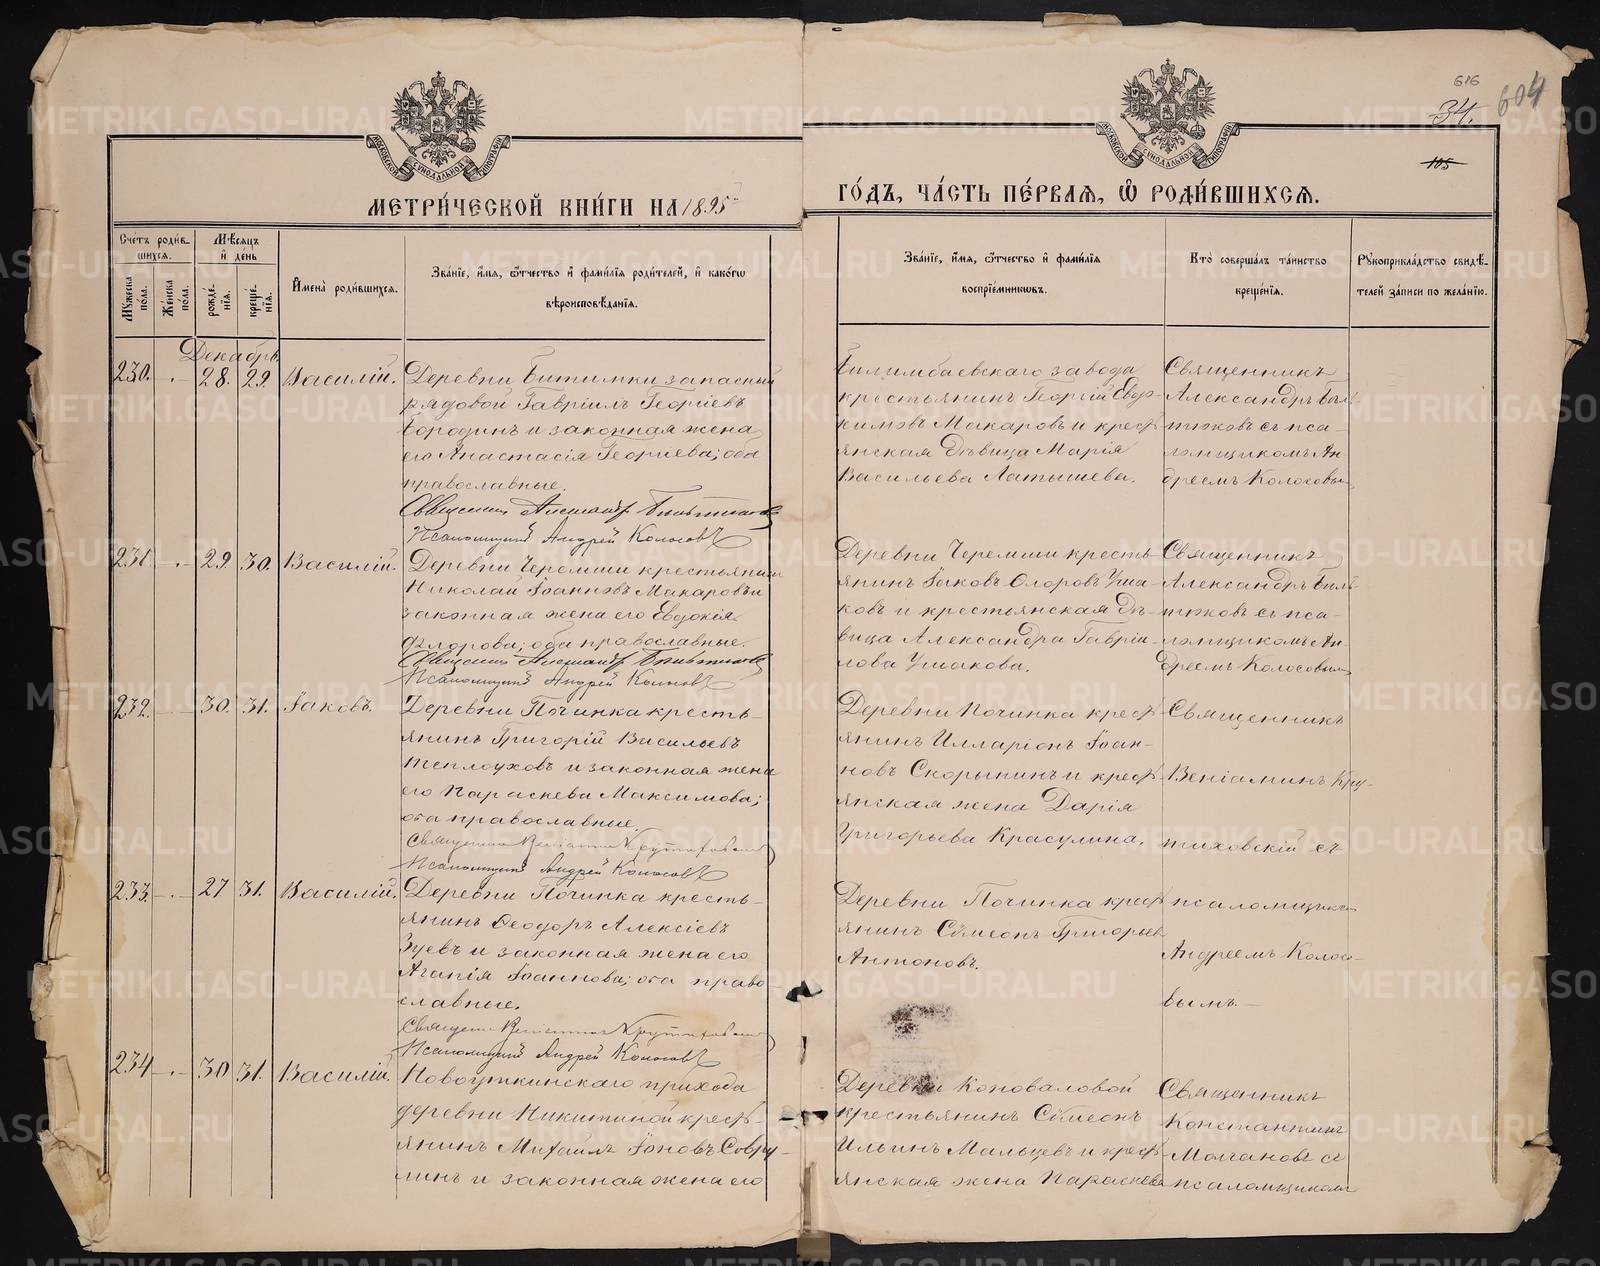 616
34.
604
105
МОСКОВСКОЙ СѴНОДАЛЬНОЙ ТИПОГРАФІИ
МОСКОВСКОЙ СѴНОДАЛЬНОЙ ТИПОГРАФІИ
МЕТРИ́ЧЕСКОЙ КНИ́ГИ НА 1895
ГО́ДЪ, ЧА́СТЬ ПЕ́РВАЯ, Ѡ РОДИ́ВШИХСЯ.
Сче́тъ роди́в-
шихся.
Мѣ́сяцъ
и де́нь
Мꙋ́жеска по́ла.
Же́нска по́ла.
рожде́-
нїя.
креще́-
нїя.
Имена̀ роди́вшихся.
Зва́нїе, и́мя, ѻ́тчество и фами́лїя роди́телей, и како́гѡ
вѣроисповѣ́данїя.
Зва́нїе, и́мя, ѻ́тчество и фами́лїя
воспрїе́мникѡвъ.
Кто̀ соверша́лъ та́инство
креще́нїя.
Рꙋкоприкла́дство свидѣ́-
телей за́писи по жела́нїю.
Декабрь
230. - . - 28. 29. Василій.
Деревни Битимки запасный
рядовой Гавріилъ Георгіевъ
Бородинъ и законная жена
его Анастасія Георгіева; оба
православные.
Священникъ Александръ
Псаломщикъ Андрей Колосовъ
Билимбаевскаго завода
крестьянинъ Георгій Евдо-
кимовъ Макаровъ и крест-
янская дѣвица Марія
Васильева Латышева.
Священникъ
Александръ
съ пса-
ломщикомъ Ан-
дреемъ Колосовымъ
231. - . - 29. 30. Василій.
Деревни Черемши крестьянинъ
Николай Іоанновъ Макаровъ и
законная жена его Евдокія
Флорова; оба православные.
Священникъ Александръ
Псаломщикъ Андрей Колосовъ
Деревни Черемши кресть-
янинъ Іаковъ Флоровъ Уша-
ковъ и крестьянская дѣ-
вица Александра Гаврій-
лова Ушакова.
Священникъ
Александръ
съ пса-
ломщикомъ Ан-
дреемъ Колосовымъ
232. 30. 31. Іаковъ.
Деревни Починка кресть-
янинъ Григорій Васильевъ
Теплоуховъ и законная жена
его Параскева Максимова;
оба православные.
Священникъ Веніаминъ
Псаломщикъ Андрей Колосовъ
Деревни Починка крест-
янинъ Илларіонъ Іоан-
новъ Скорынинъ и крест-
янская жена Дарія
Григорьева Красулина.
Священникъ
Веніаминъ Кру-
тиховскій съ
псаломщикомъ
Андреемъ Колосо-
вымъ. -
233. - . - 27 31. Василій.
Деревни Починка кресть-
янинъ Ѳеодоръ Алексіевъ
Зуевъ и законная жена его
Агапія Іоаннова; оба право-
славные.
Священникъ Веніаминъ
Псаломщикъ Андрей Колосовъ
Деревни Починка крест-
янинъ Сѵмеонъ Григорьев
Антоновъ.
234 - . - 30 31. Василій.
Новоуткинскаго прихода
деревни Никитиной крест-
янинъ Михаилъ Іоновъ Совру-
линъ и законная жена его
Деревни Коноваловой
крестьянинъ Сѵмеонъ
Ильинъ Мальцевъ и крест-
янская жена Параскева
Священникъ
Константинъ
Молчановъ съ
псаломщикомъ
METRIKI.GASO-URAL.RU